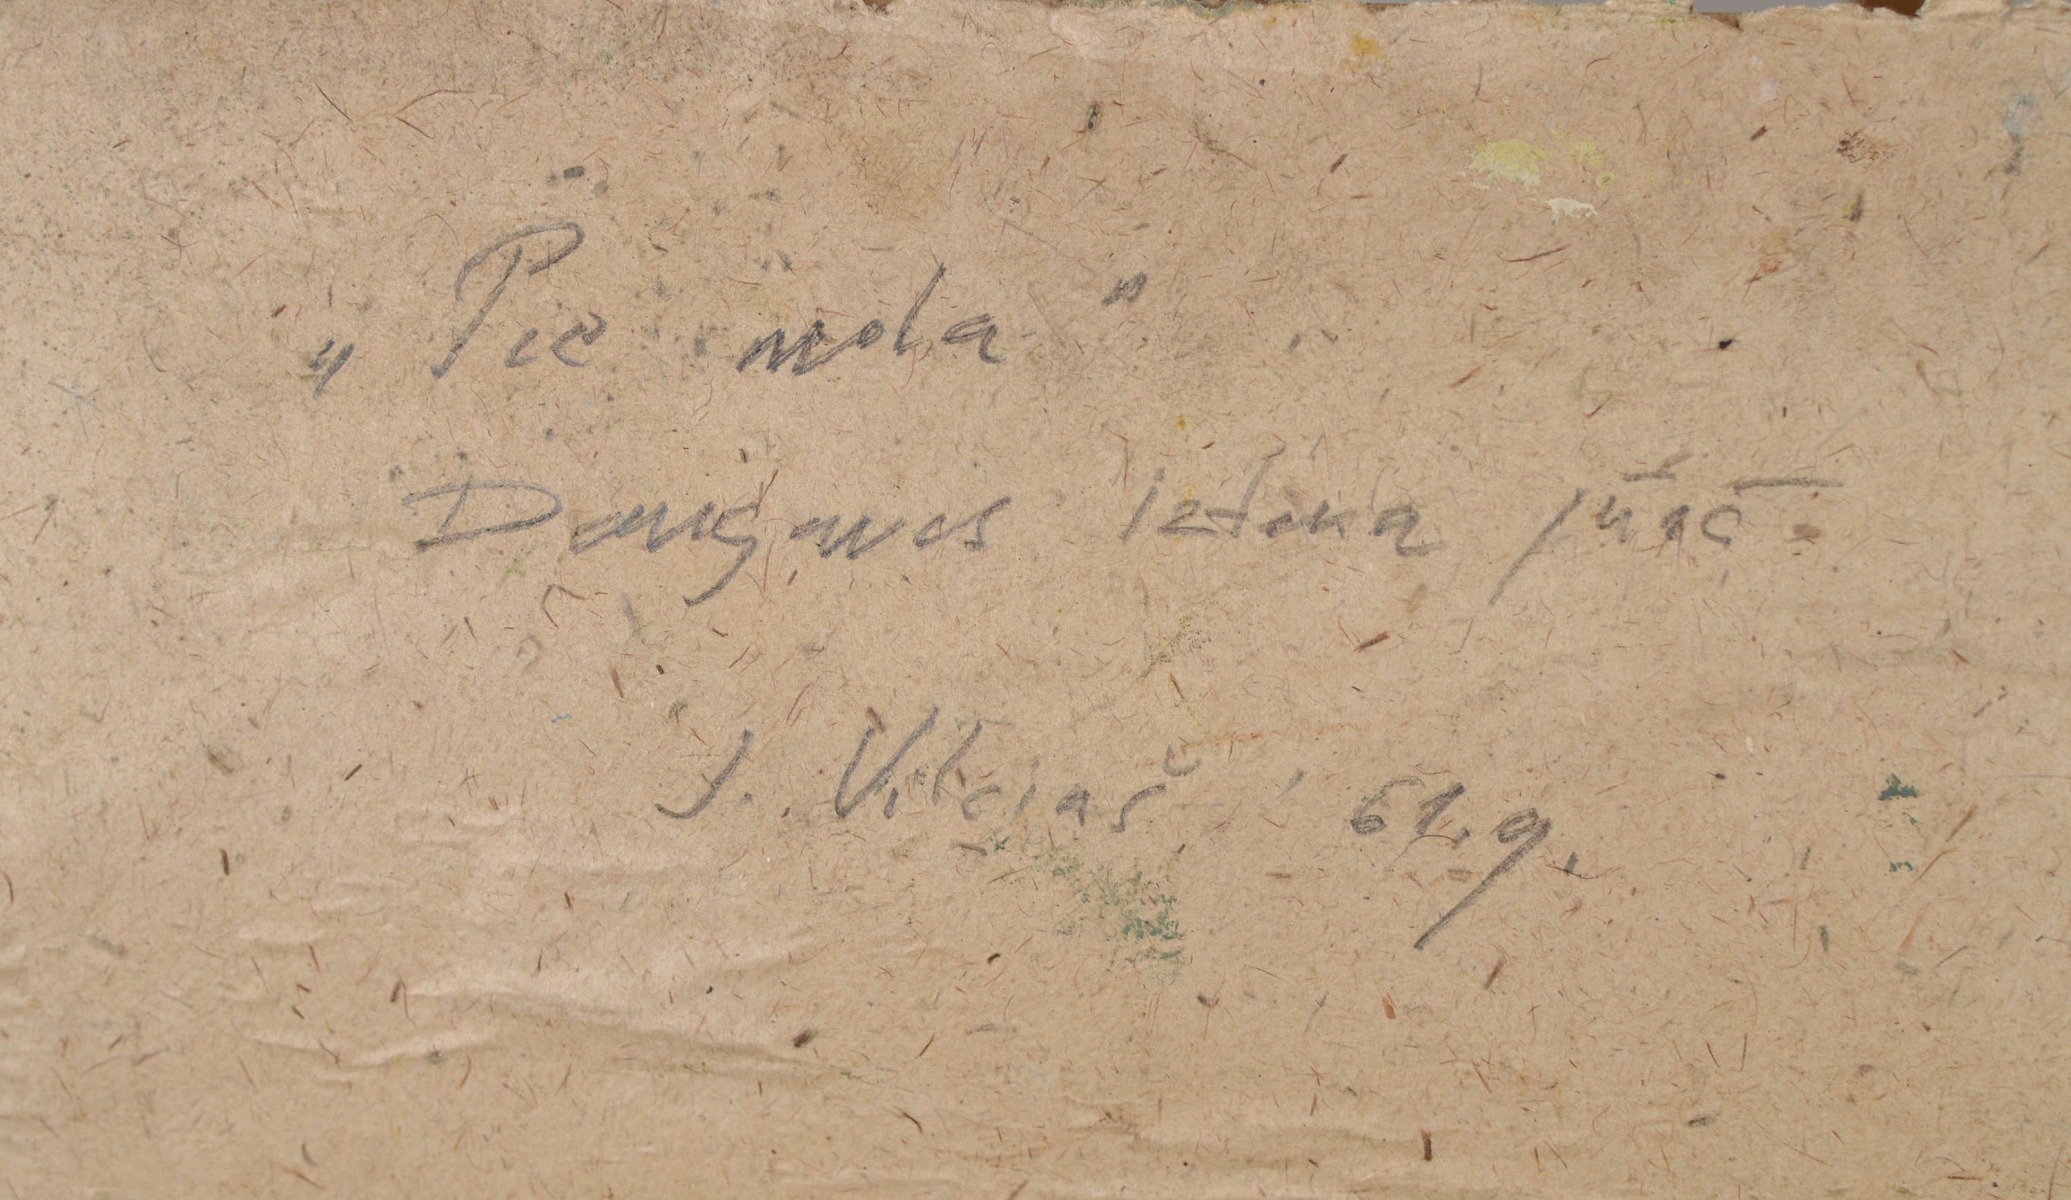 „Pie mola"
Daugavas ietekā jūrā
J. Vilciaš 61.g.